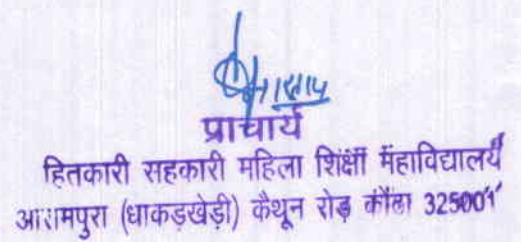 प्राचार्य
हितकारी सहकारी महिला शिक्षा महाविद्यालय
आरामपुरा (धाकड़खेड़ी) कैथून रोड़ कोटा 325001